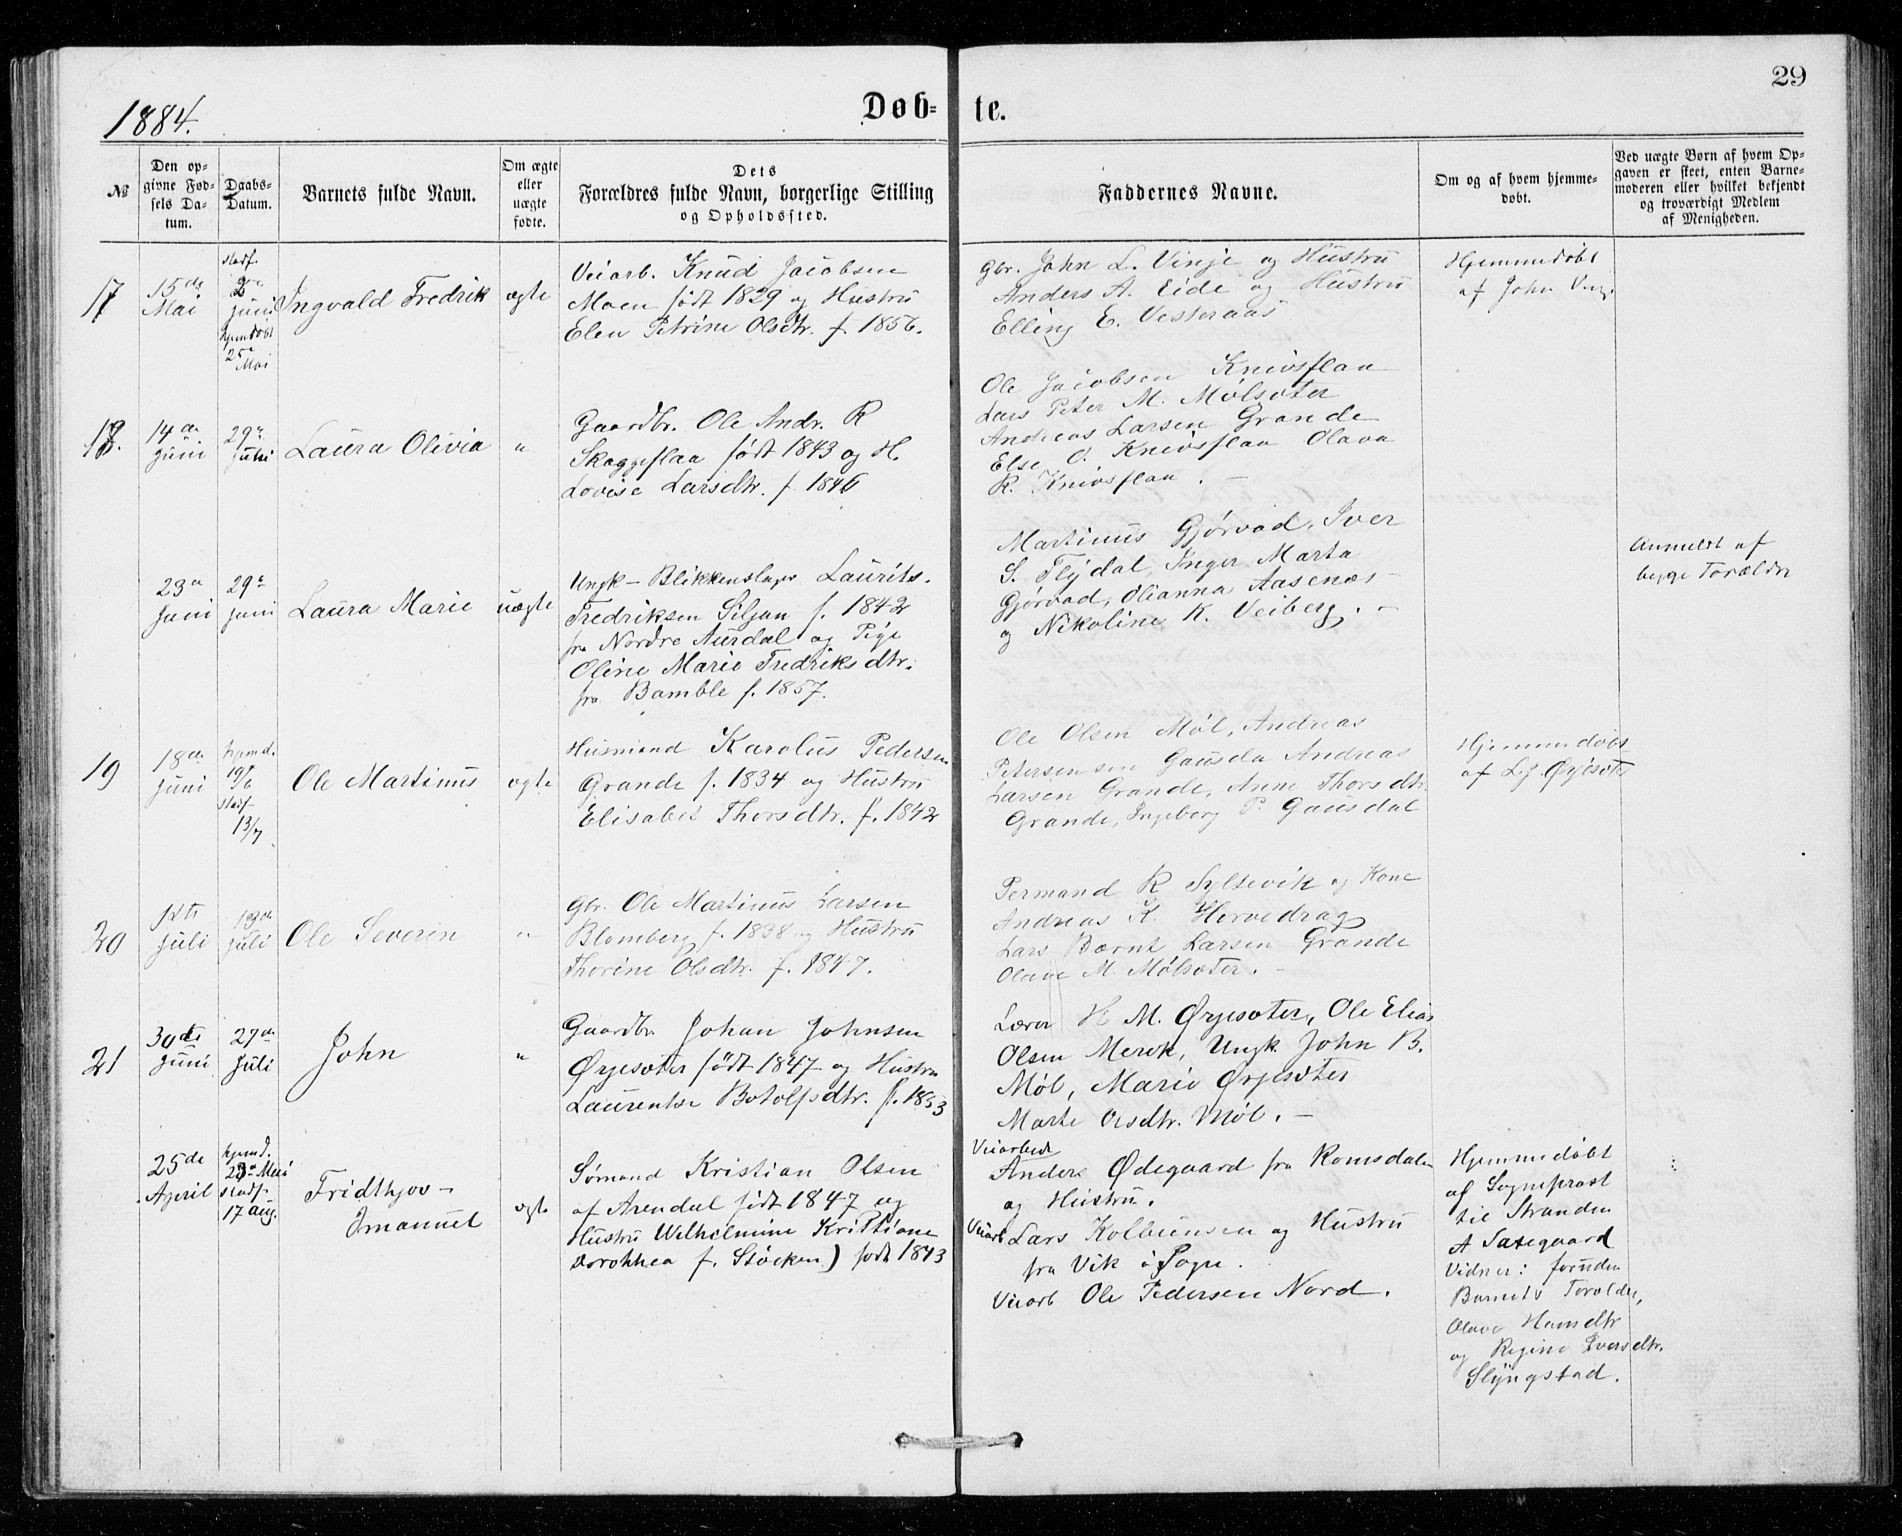 29
1884.
Døb- te.
№
Den op-
givne Fød-
sels Da-
tum.
Daabs-
Datum.
Barnets fulde Navn.
Om ægte
eller
uægte
fødte.
Dets
Forældres fulde Navn, borgerlige Stilling
og Opholdssted.
Faddernes Navne.
Om og af hvem hjemme-
døbt.
Ved uægte Børn af hvem Op-
gaven er skeet, enten Barne-
moderen eller hvilket bekjendt
og troværdigt Medlem
af Menigheden.
17
15de
Mai
stadf.
2den
juni
hjemdøbt
25de
Mai
Ingvald Fredrik
ægte
Veiarb. Knud Jacobsen
Moen født 1829 og Hustru
Elen Petrine Olsdtr. f. 1856.
Gbr. John L. Vinje og Hustru
Anders A. Eide og Hustru
Elling E. Vesteraas
Hjemmedøbt
af John Vinj.
18.
14de
juni
29de
juni
Laura Olivia
"
Gaardbr. Ole Andr. R
Skaggeflaa født 1843 og H.
Lovise Larsdtr. f. 1846
Ole Jacobsen Knivsflaa
Lars Peter M. Mølsæter
Andreas Larsen Grande
Else O. Knivsflaa Olava
R. Knivsflaa. -
23de
juni
29de
juni
Laura Marie
uægte
Ungk-Blikkenslager Laurits.
Fredriksen Siljan f. 1842
fra Nordre Aurdal og Pige
Oline Marie Fredriksdtr.
fra Bamble f. 1857.
Martinus Gjørvad, Iver
S. Flydal, Inger Marta
Gjørvad, Olianna Aasenæs
og Nikoline K. Veiberg. -
Anmeldt af
begge Forældre
19
18de
juni
hjemd.
19/6
stadf.
13/7
Ole Martinus
ægte
Husmand Karolus Pedersen
Grande f. 1834 og Hustru
Elisabet Thorsdtr. f. 1842
Ole Olsen Møl, Andreas
Petersen Gausda Andreas
Larsen Grande, Anne Thorsdtr.
Grande, Ingeborg P. Gausdal
Hjemmedøbt
af L.J. Ørjesæter
20
juli
13de
juli
Ole Severin
"
Gbr. Ole Martinus Larsen
Blomberg f. 1838 og Hustru
Thorine Olsdtr. f. 1847.
Permand R Syltevik og Kone
Andreas K. Hervedrag
Lars Bærnt Larsen Grande
Olave M. Mølsæter. -
21
30de
juni
27de
juli
John
"
Gaardbr. Johan Johnsen
Ørjesæter født 1847 og Hustru
Laurentse Botolfsdtr. f. 1853
Lærer H M. Ørjesæter, Ole Elias
Olsen Merok, Ungk. John B.
Møl, Marie Ørjesæter
Marte Olsdtr. Møl. -
25de
April
hjemd.
23de Mai
stadf.
17 aug.
Fridthjov-
Imanuel
ægte
Sømand Kristian Olsen
af Arendal født 1847 og
Hustru Wilhelmine Kristiane
Dorothea f. Støcken) født 1843
Veiarbeidr
Anders Ødegaard fra Romsdalen
og Hustru.
Veiarb Lars Kolbeinsen og Hustru
fra Vik i Sogn.
Veiarb Ole Pedersen Nord.
Hjemmedøbt
af Sogneprest
til Stranden
A Saxegaard
Vidner: foruden
Barnets Forældre,
Olave Hansdtr
og Regine Iversdtr.
Slyngstad.